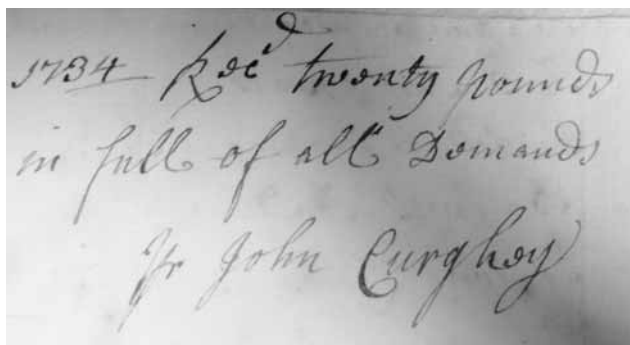 1734 Recd twenty pounds
in full of all Demands
Pr John Curghey